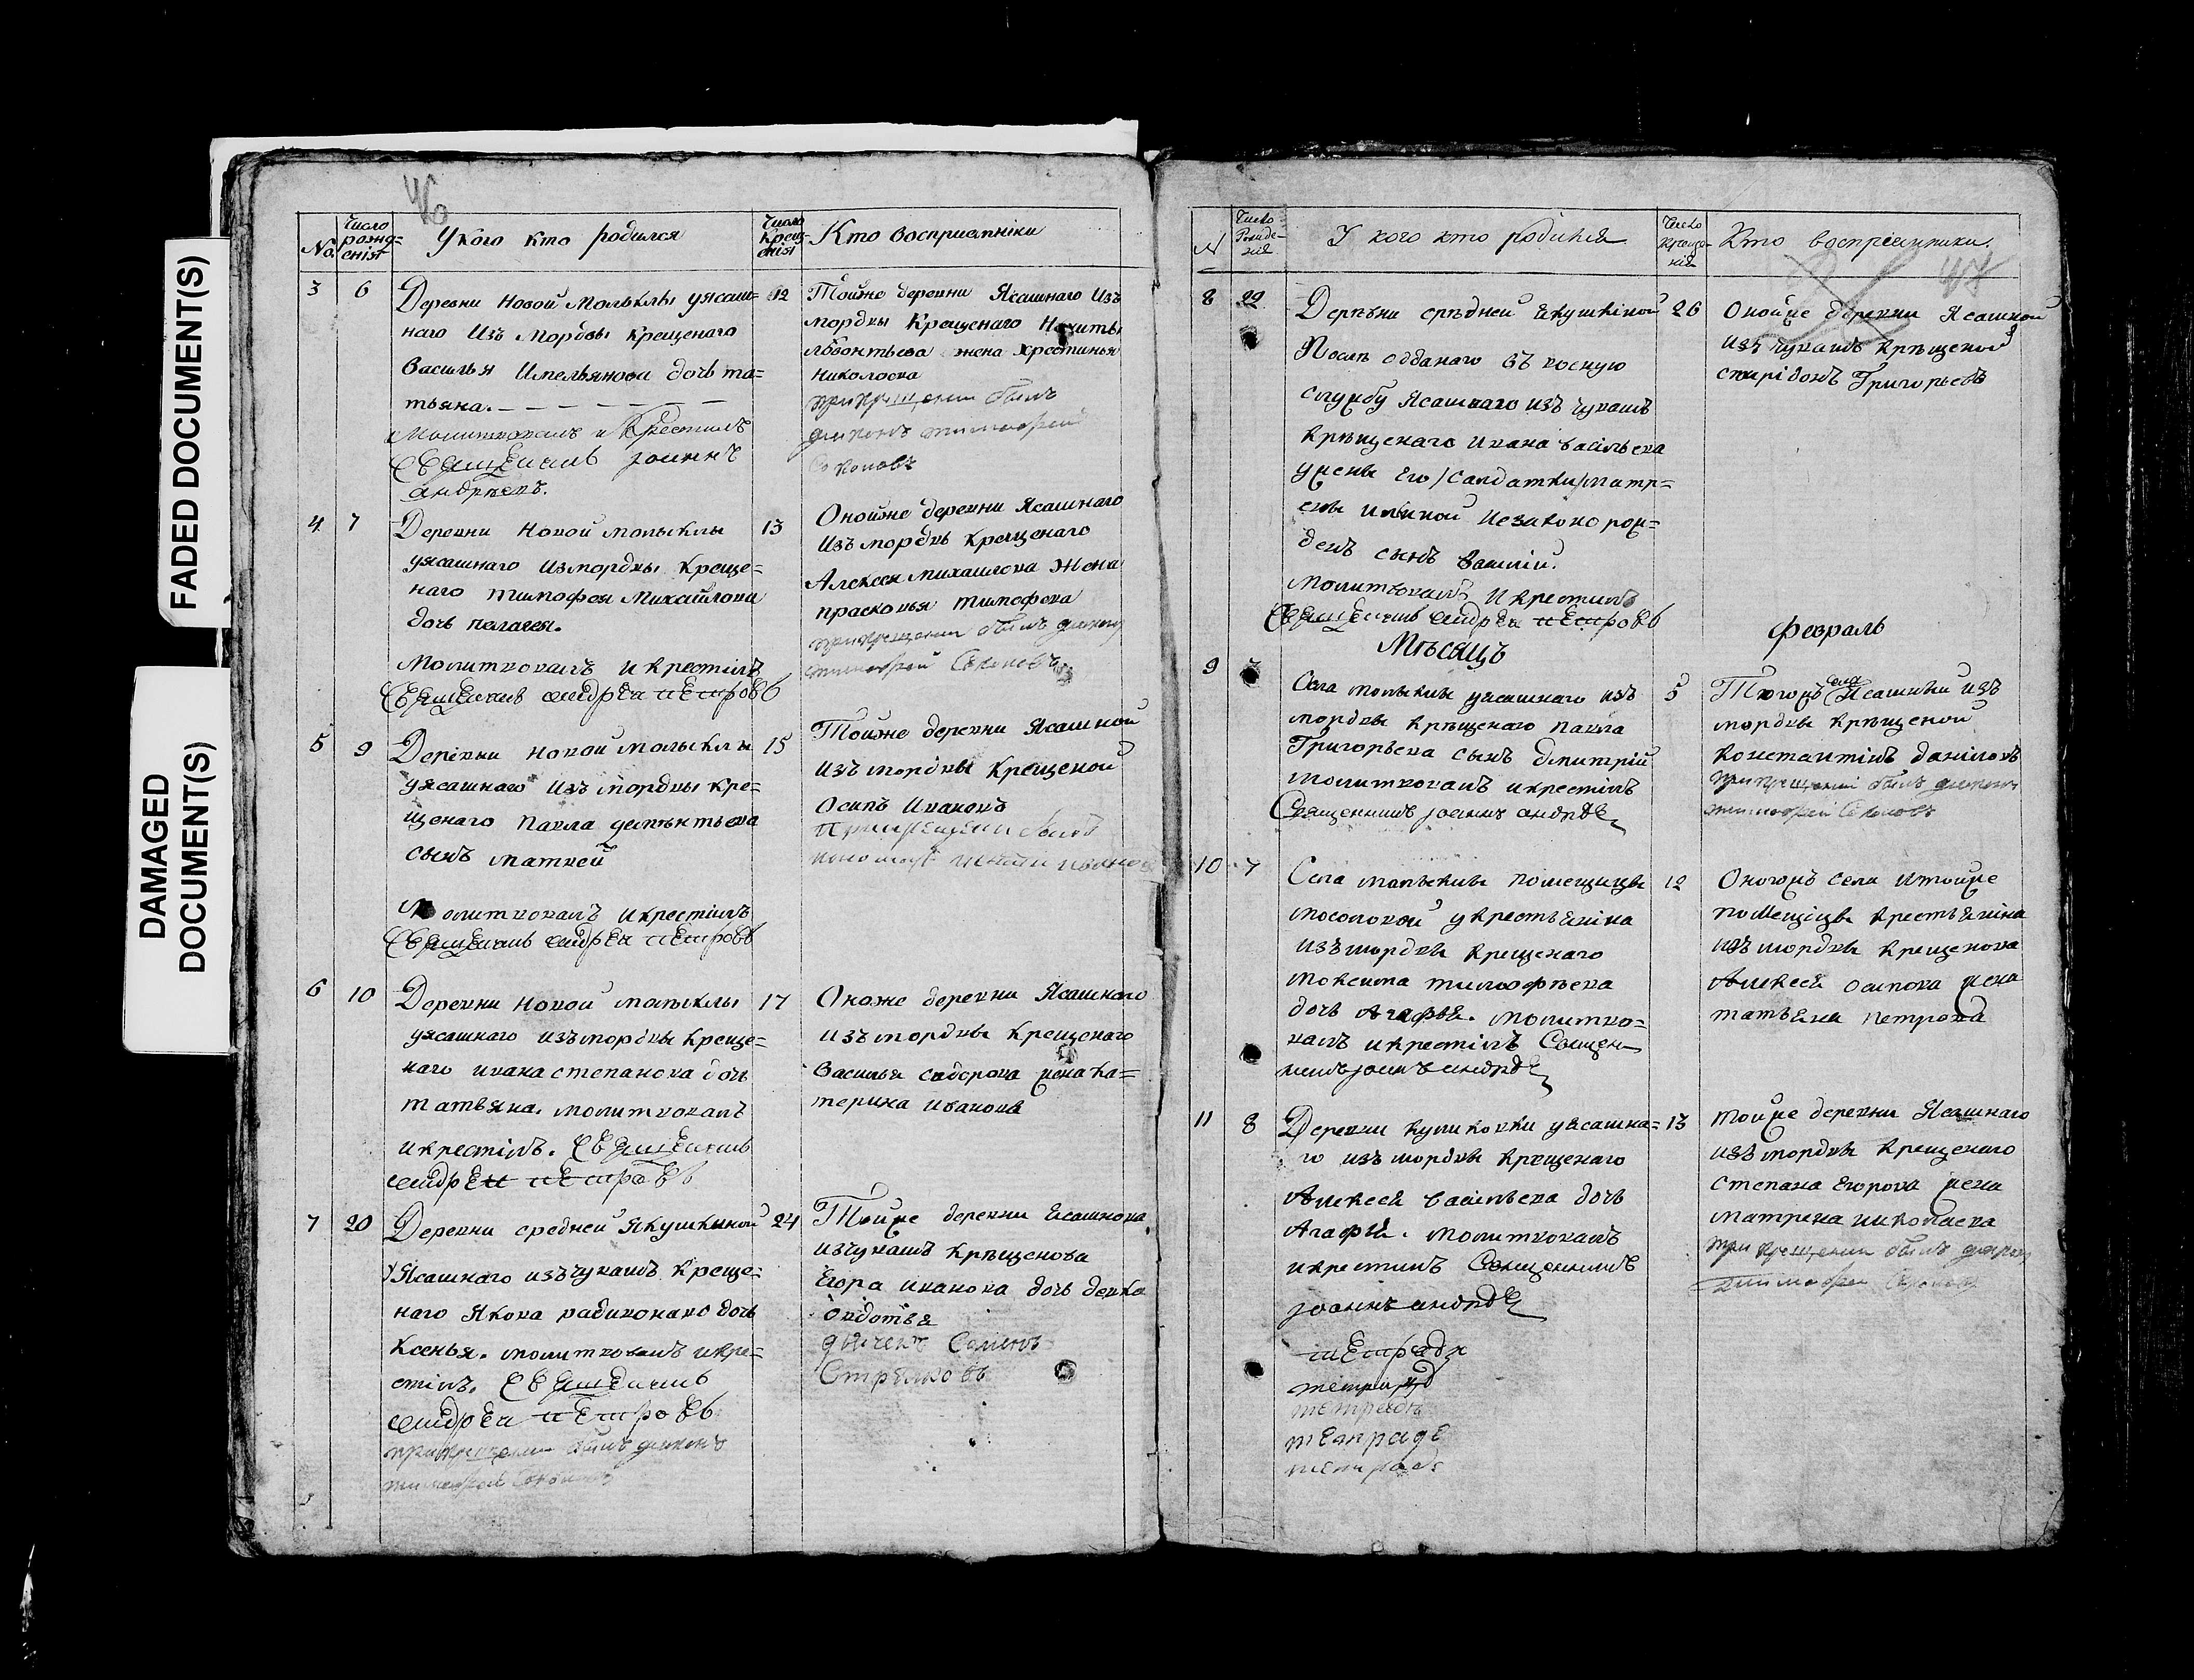 FADED DOCUMENT(S)
DAMAGED
DOCUMENT(S)
46
No.
Число
рожд=
енія
Укого кто родился
Число
Крещ=
енія
Кто восприемники
3
6
Деревни Новой Малыклы уясаш=
наго Изъ Мордвы Крещенаго
Василья Имельянова дочь та=
тьяна.
Молитвовалъ и Крестилъ
Священникъ Iоаннъ
андрѣевъ.
12
Тойже деревни Ясашнаго Изъ
мордвы Крещенаго Никиты
жена Хрестинья
Николоева
при крещении былъ
диконъ тимофей
Соколовъ
4
7
Деревни Новой малыклы
уясашнаго измордвы Креще=
наго тимофея Михайлова
дочь пелагея.
Молитвовалъ и крестилъ
Священникъ андрей петровъ
13
Онойже деревни Ясашнаго
Изъ мордвы Крещенаго
Алексея михаилова жена
прасковья тимофева
при крещении былъ диконъ
тимофей Соколовъ
5
9
Деревни новой малыклы
уясашнаго изъ мордвы кре=
щенаго павла
сынъ матвей
Молитвовалъ и крестілъ
Священникъ андрей петровъ
15
Тойже деревни Ясашной
изъ мордвы Крещеной
Осипъ Ивановъ
при крещении былъ
6
10
Деревни новой малыклы
уясашнаго изъ мордвы креще=
наго ивана степанова дочь
татьяна. молитвовалъ
и крестілъ. Священникъ
андрей петровъ
17
Оноже деревни Ясашнаго
изъ мордвы Крещенаго
Василья сидорова жена ка=
терина иванова
7
20
Деревни средней Якушкиной
уЯсашнаго изъ чувашъ креще=
наго Якова радивонаво дочь
Ксенья. молитвовалъ и кре=
стілъ. Священникъ
андрей петровъ
при крещении былъ диконъ
тимофей Соколовъ
24
Тойже деревни Ясашнова
изчувашъ крѣщенова
Егора иванова дочь девка
овдотья
дьячекъ Семенъ
Стрелковъ
N
Число
Рожде-
нія
У кого кто родился
Число
креще-
нія
Кто воспріемники.
47
8
22
Деревни срѣдней Якушкіной
Послѣ отданаго въ военую
службу Ясашнаго изъ чувашъ
крѣщенаго ивана васільева
ужены Его / Салдатки / матр=
ены незаконорож=
денъ сынъ василій.
молитвовалъ и крестилъ
Священникъ андрей петровъ
26
Онойже деревни Ясашной
изъ чувашъ крѣщеной
спирідонъ Григорьевъ
Мѣсяцъ
Февраль
9
3
Села малыклы уясашнаго изъ
мордвы крѣщенаго павла
Григорьева сынъ дмитрій
молитвовалъ и крестілъ
Священникъ Iоаннъ андрѣе
5
Тогожъ села Ясашный изъ
мордвы крѣщеной
константінъ даніловъ
при крещении былъ диконъ
тимофей Соколовъ
10
7
Села малыклы помещицы
мосоловой укрестьяніна
изъ мордвы крещенаго
моксима тимофѣева
дочь Агафья. молитво=
валъ и крестілъ Священ=
никъ Iоаннъ андрѣе
12
Оногожъ села итойже
помещіцы крестьяніна
изъ мордвы крещенова
Алексея осипова жена
татьяна петрова
11
8
Деревни куликовки уясашна=
го изъ мордвы крещенаго
Алексея васильева дочь
Агафья. молитвовалъ
и крестилъ Священникъ
Iоаннъ андрѣе
13
тойже деревни Ясашнаго
изъ мордвы крещенаго
степана Егорова жена
матрена николаева
при крещении былъ диконъ
тимофей Соколовъ
тетради
тетрад
тетради
тетраде
тетради